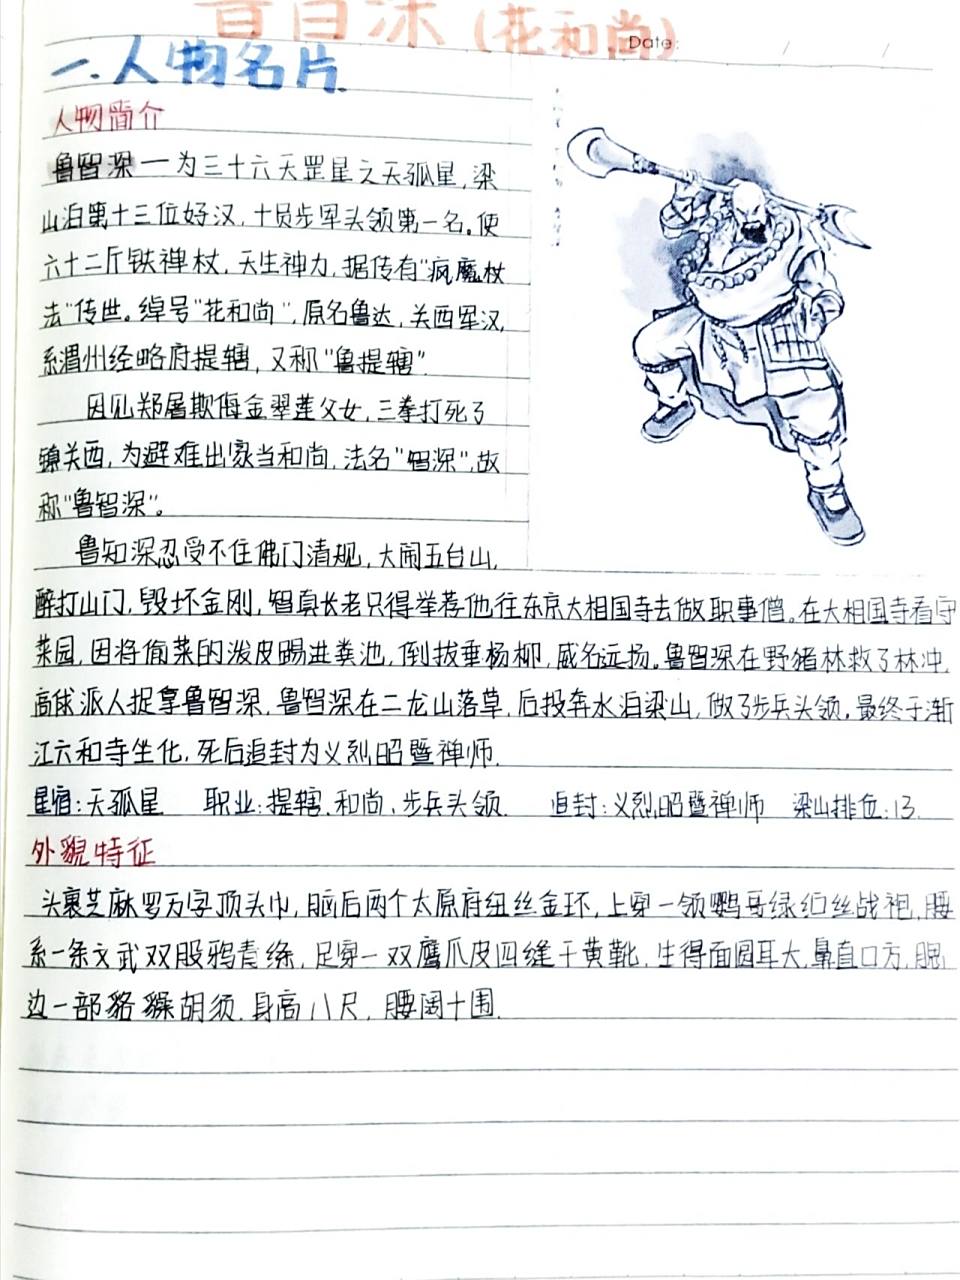 鲁智深(花和尚)
Date: / /
一.人物名片
人物简介
鲁智深一为三十六天罡星之天孤星,梁
山泊第十三位好汉,十员步军头领第一名。使
六十二斤铁禅杖,天生神力,据传有"疯魔杖
法"传世。绰号"花和尚",原名鲁达,关西军汉,
系渭州经略府提辖,又称"鲁提辖".
因见郑屠欺侮金翠莲父女,三拳打死了
镇关西,为避难出家当和尚,法名"智深",故
称"鲁智深"。
鲁知深忍受不住佛门清规,大闹五台山,
醉打山门,毁坏金刚,智真长老只得举荐他往东京大相国寺去做职事僧。在大相国寺看守
菜园,因将偷菜的泼皮踢进粪池,倒拔垂杨柳,威名远扬。鲁智深在野猪林救了林冲,
高俅派人捉拿鲁智深,鲁智深在二龙山落草,后投奔水泊梁山,做了步兵头领,最终于浙
江六和寺坐化,死后追封为义烈昭暨禅师.
星宿:天孤星 职业:提辖.和尚、步兵头领. 追封:义烈昭暨禅师 梁山排位:13.
外貌特征
头裹芝麻罗万字顶头巾,脑后两个太原府纽丝金环,上穿一领鹦哥绿纻丝战袍,腰
系一条文武双股鸦青绦,足穿一双鹰爪皮四缝干黄靴,生得面圆耳大,鼻直口方,腮
边一部貉𧳅胡须.身高八尺,腰阔十围.